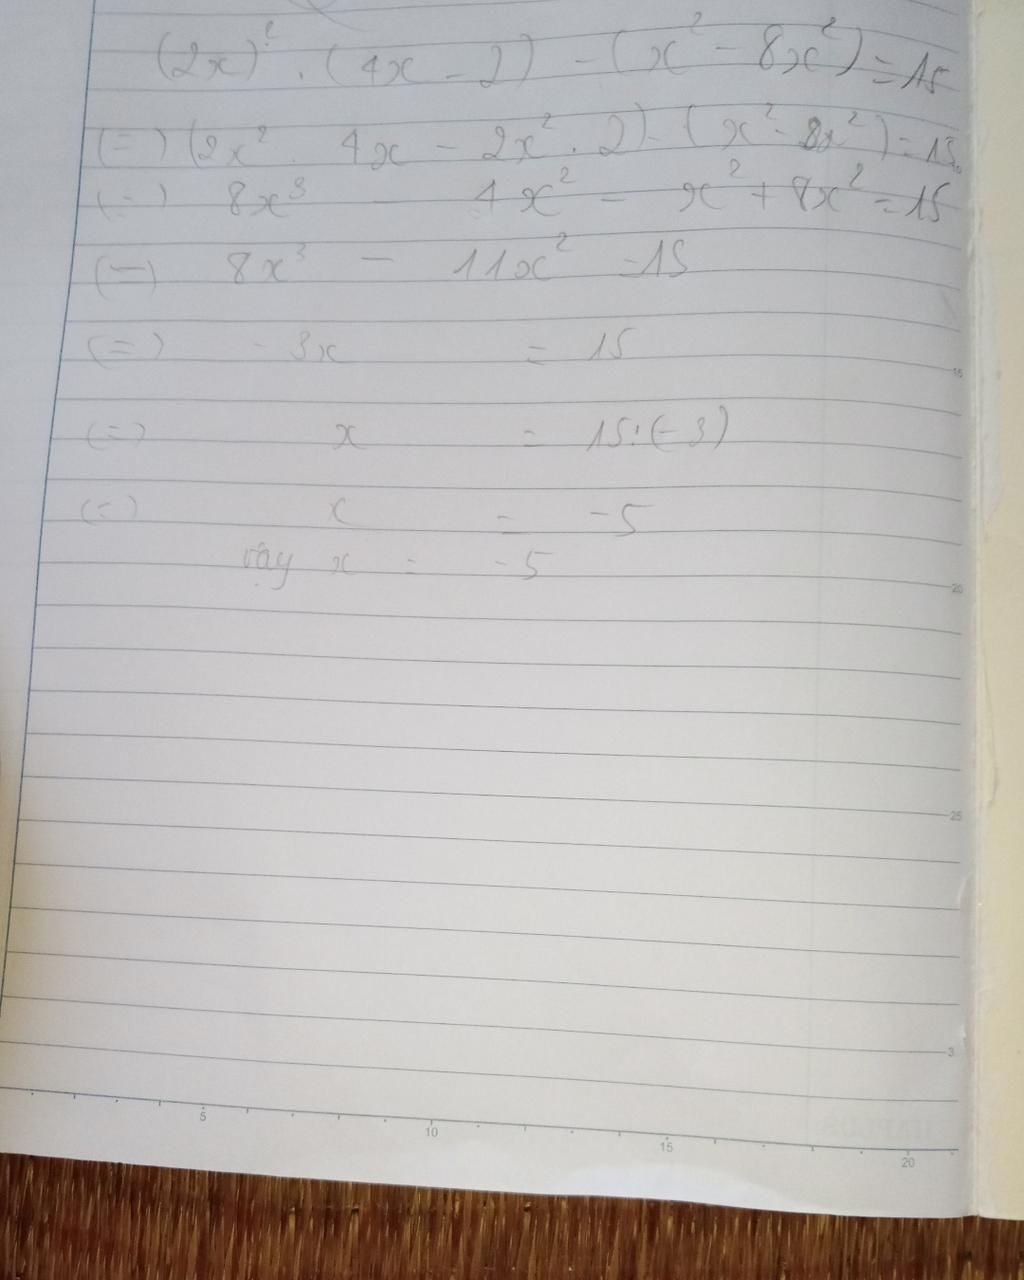 (2x)² . (4x - 2) - (x² - 8x²) = 15
(=) (2x² . 4x - 2x² . 2) - (x² - 8x²) = 15
(=) 8x³ - 4x² - x² + 8x² = 15
(=) 8x³ - 11x² = 15
(=) - 3x = 15
(=) x = 15 : (-3)
(=) x = -5
vậy x = -5
15
20
25
3
5
10
15
20